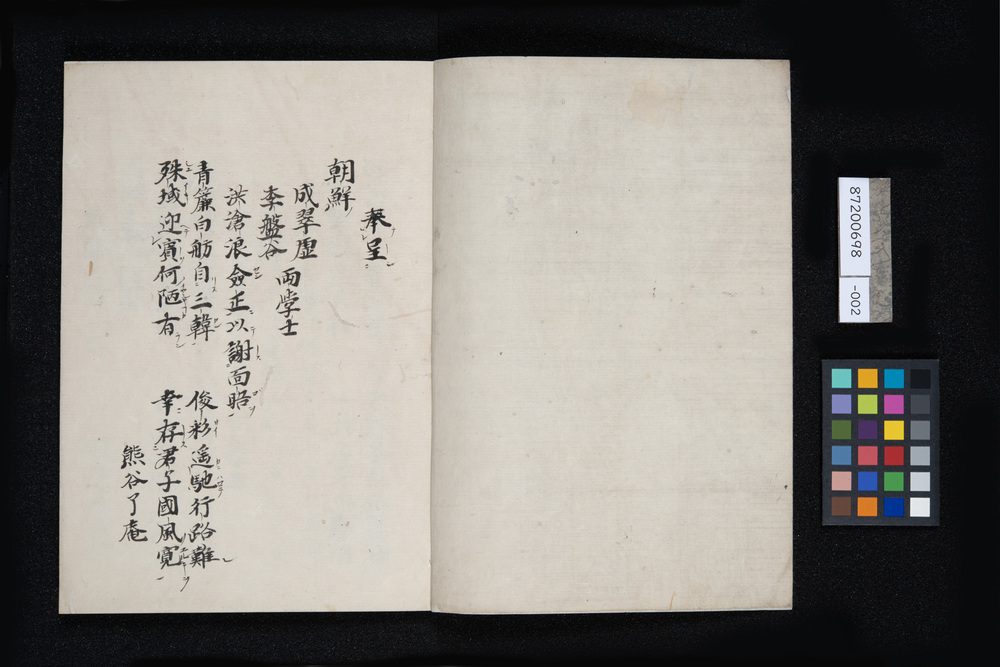 奉呈
朝鮮
成翠虚
李盤谷
両学士
洪滄浪僉正以謝面晤
青簾白舫自三韓
俊彩遥馳行路難
殊域迎賓何陋有
幸存君子國風寛
熊谷了庵
87200698
-002